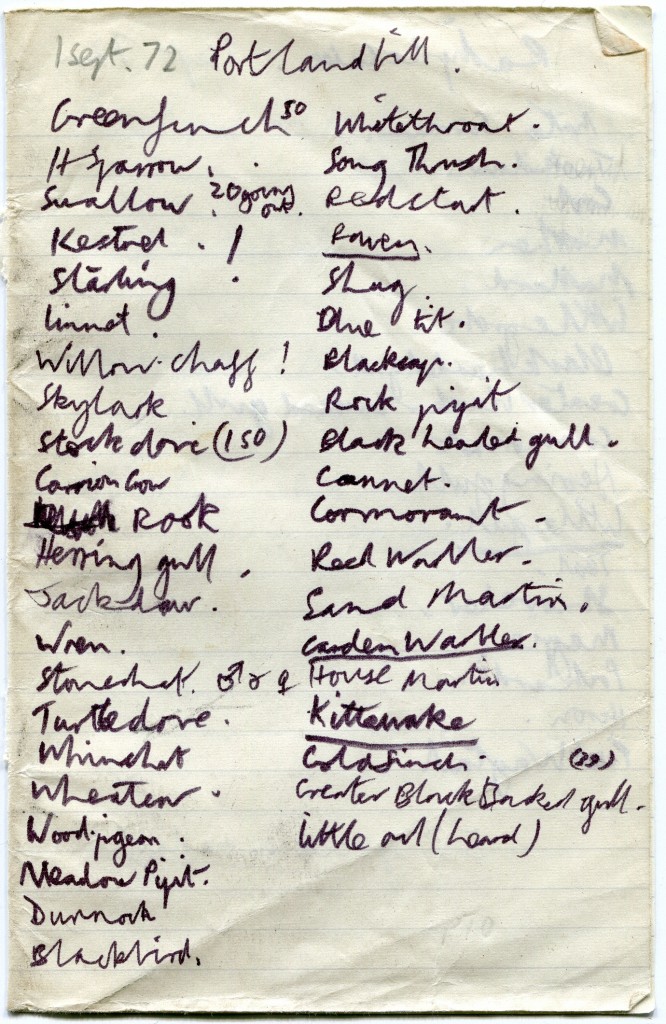 1 sept. 72 Portland bill.
Greenfinch 50
H Sparrow.
Swallow. 20 going out.
Kestrel. 1
Starling
Linnet.
Willow-chaff !
Skylark
Stock dove (150)
Carrion Crow
Rook
Herring gull.
Jackdaw.
Wren.
Stonechat. ♂ ♀
Turtle dove.
Whinchat
Wheatear.
Wood-pigeon.
Meadow Pipit.
Dunnock
Blackbird.
Whitethroat.
Song Thrush.
Redstart.
Raven.
Shag.
Blue tit.
Blackcap.
Rock pipit
Black headed gull.
Gannet.
Cormorant.
Reed Warbler.
Sand Martin.
Garden Warbler.
House Martin
Kittewake
Goldfinch.
Greater Black Backed gull.
little owl (heard)
PTO